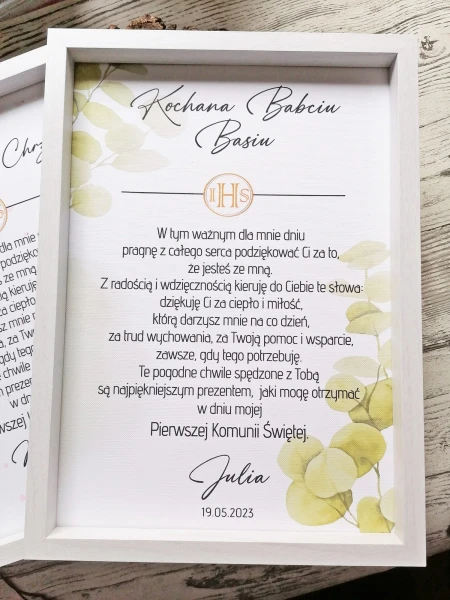 Kochana Babciu
Basiu
IHS
W tym ważnym dla mnie dniu
pragnę z całego serca podziękować Ci za to,
że jesteś ze mną.
Z radością i wdzięcznością kieruję do Ciebie te słowa:
dziękuję Ci za ciepło i miłość,
którą darzysz mnie na co dzień,
za trud wychowania, za Twoją pomoc i wsparcie,
zawsze, gdy tego potrzebuję.
Te pogodne chwile spędzone z Tobą
są najpiękniejszym prezentem, jaki mogę otrzymać
w dniu mojej
Pierwszej Komunii Świętej.
Julia
19.05.2023